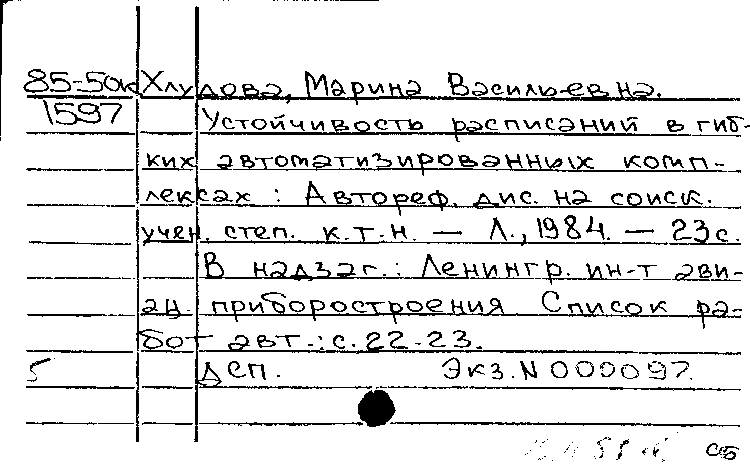 85-50к Хлудова, Марина Васильевна.
1597 Устойчивость расписаний в гиб-
ких автоматизированных комп-
лексах : Автореф. дис. на соиск.
учен. степ. к.т.н. — Л., 1984. — 23 с.
В надзаг.: Ленингр. ин-т ави-
ац. приборостроения. Список ра-
бот авт.: с. 22-23.
5 ДСП. Экз. N 000097.